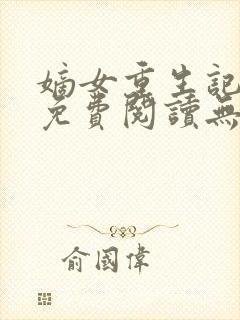 嫡女重生記
免費閱讀無
俞國偉